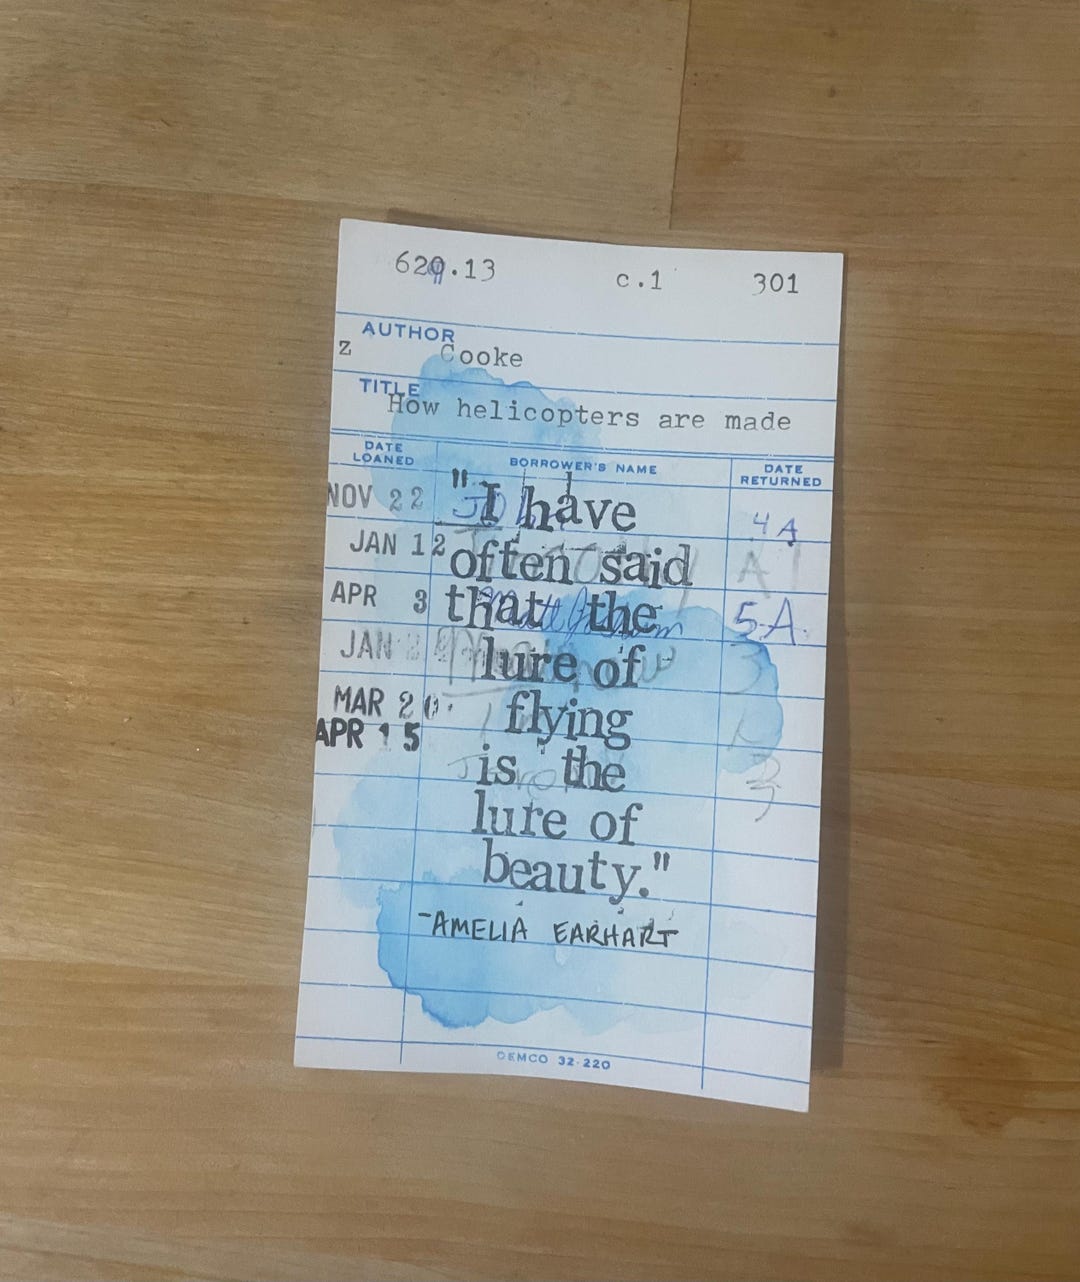 629.13 c.1 301
AUTHOR
z Cooke
TITLE
How helicopters are made
DATE LOANED BORROWER'S NAME DATE RETURNED
NOV 22 "I have 4A
JAN 12 often said A
APR 3 that the 5A
JAN lure of 3
MAR 20 flying
APR 15 is the 3
lure of
beauty."
-AMELIA EARHART
DEMCO 32-220